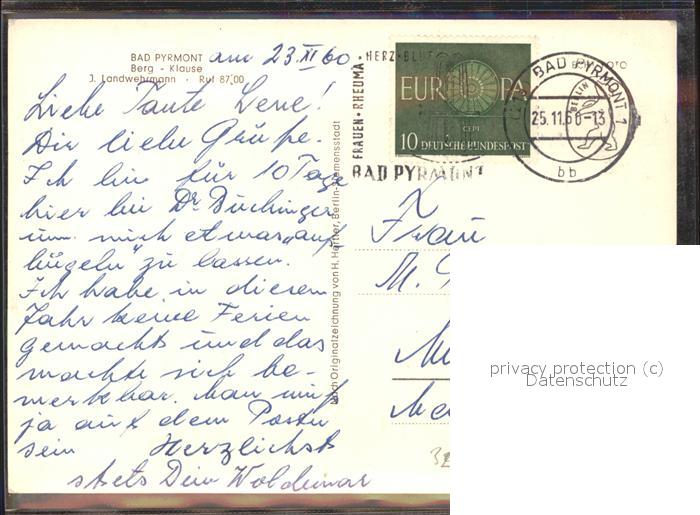 BAD PYRMONT
Berg - Klause
J. Landwehrmann · Ruf 87 00
am 23 XI 60
Liebe Tante Lene!
Dir liebe Grüße.
Ich bin für 10 Tage
hier bei Dr. Buchinger
um mich etwas „auf
bügeln" zu lassen.
Ich habe in diesem
Jahr keine Ferien
gemacht und das
machte sich be-
merkbar. Man muß
ja auf dem Posten
sein Herzlichst
stets Dein Woldemar
nach Originalzeichnung von H. Hertler, Berlin-Siemensstadt
FRAUEN · RHEUMA · HERZ · BLUT
BAD PYRMONT
EUROPA
CEPT
10 DEUTSCHE BUNDESPOST
BAD PYRMONT 1
BERLIN
25.11.60-13
bb
Frau
M.
privacy protection (c)
Datenschutz